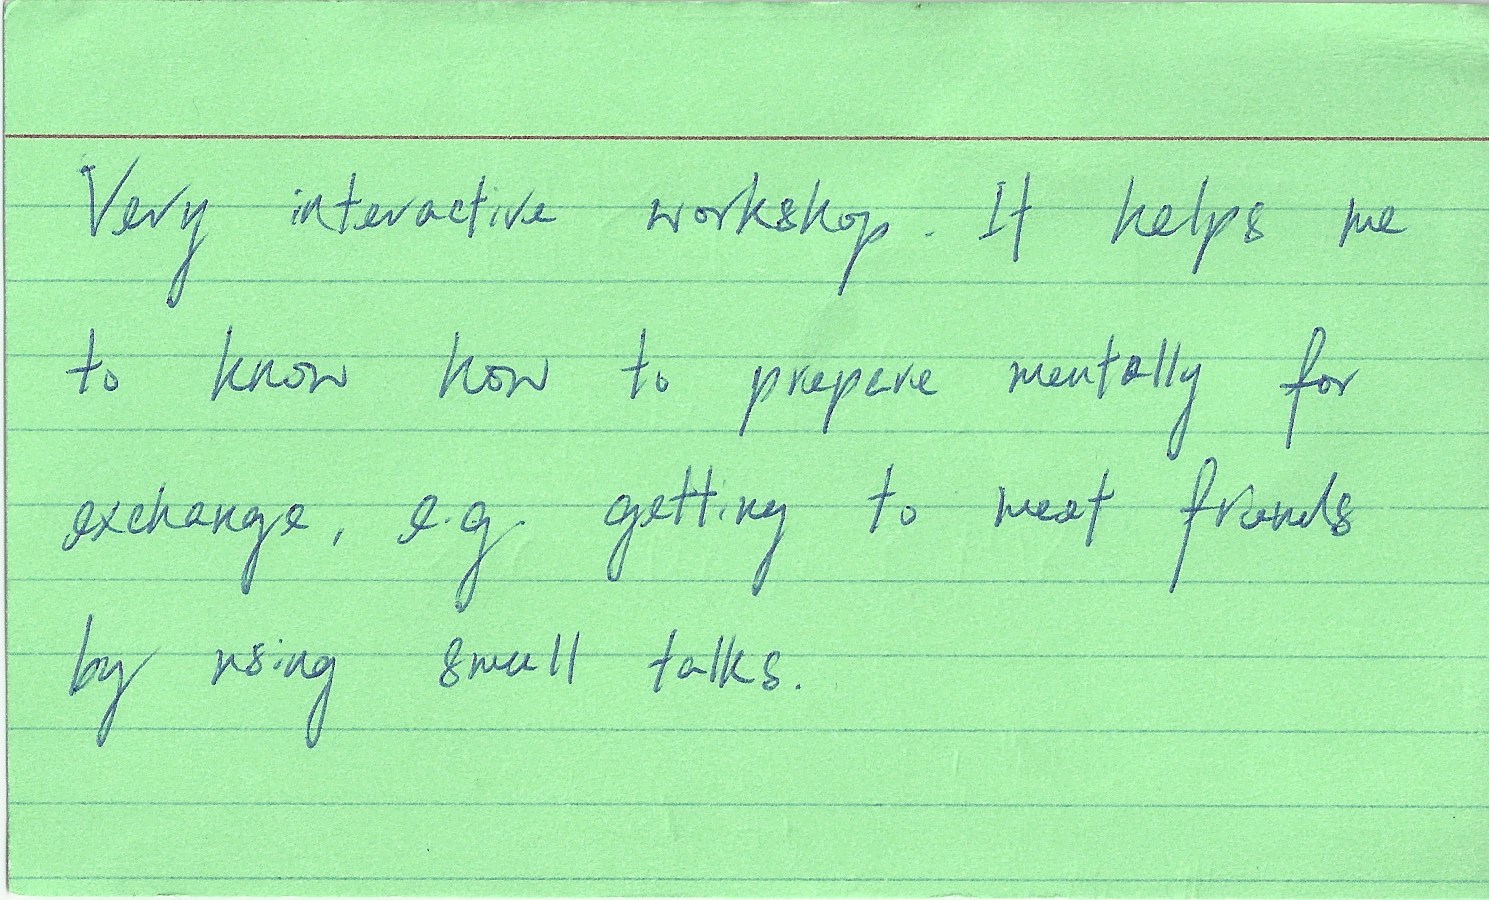 Very interactive workshop. It helps me
to know how to prepare mentally for
exchange, e.g. getting to meet friends
by using small talks.